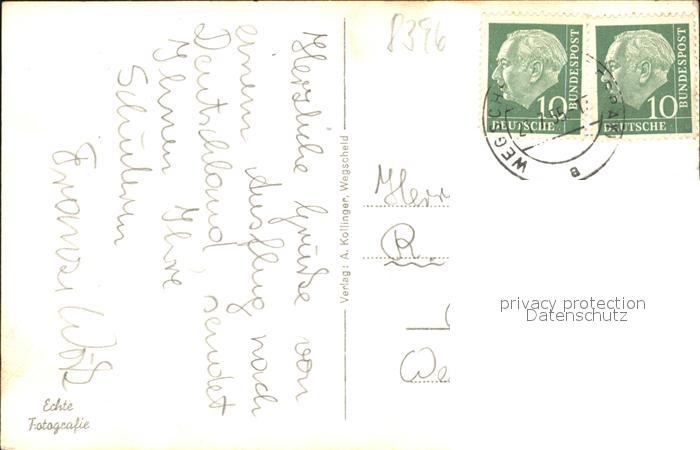 Herzliche Grüße von
einem Ausflug nach
Deutschland sendet
Ihnen Ihre
Schülerin
8396
Verlag: A. Kollinger, Wegscheid
Echte
Fotografie
Herr
R.
privacy protection
Datenschutz
10
BUNDESPOST
DEUTSCHE
10
BUNDESPOST
DEUTSCHE